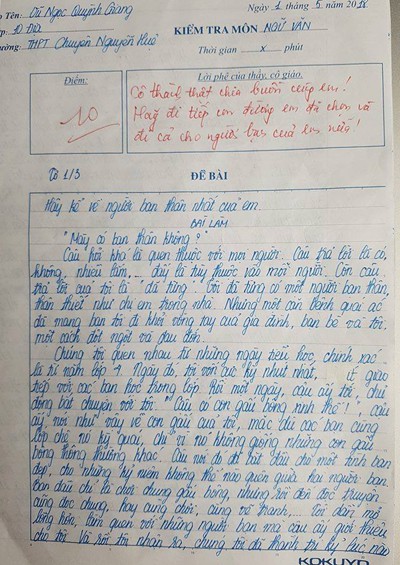 Tên: Vũ Ngọc Quỳnh Giang
Ngày 1 tháng 5 năm 20
Lớp: 10
KIỂM TRA MÔN NGỮ VĂN
Trường: THPT Chuyên Nguyễn Huệ
Thời gian x phút
Điểm:
10
Lời phê của thầy, cô giáo
Cô thành thật chia buồn cùng em!
Hãy đi tiếp con đường em đã chọn và
đi cả cho người bạn của em nữa!
ĐỀ BÀI
Hãy kể về người bạn thân nhất của em
BÀI LÀM
"Mày có bạn thân không?"
Câu hỏi khá là quen thuộc với mọi người. Câu trả lời là có,
không, nhiều lắm,... đấy là tùy thuộc vào mỗi người. Còn câu
trả lời của tôi là "đã từng". Tôi đã từng có một người bạn thân,
thân thiết như chị em trong nhà. Nhưng một căn bệnh quái ác
đã mang bạn tôi đi khỏi vòng tay của gia đình, bạn bè và tôi
một cách đột ngột và đau đớn.
Chúng tôi quen nhau từ những ngày tiểu học, chính xác
là từ năm lớp 4. Ngày đó, tôi vốn cực kỳ nhút nhát, ít giao
tiếp với các bạn học trong lớp. Rồi một ngày, cậu ấy tới, chủ
động bắt chuyện với tôi. "Cậu có con gấu bông xinh thế!", cậu
ấy nói như vậy về con gấu của tôi, mặc dù các bạn cùng
lớp chê nó kỳ quái, chỉ vì nó không giống những con gấu
bông thông thường khác. Câu nói đó đã bắt đầu cho một tình bạn
đẹp, cho những kỷ niệm không thể nào quên giữa hai người bạn.
Ban đầu chỉ là chơi chung gấu bông, nhưng rồi đời đọc truyện
cũng đọc chung, hay cùng chơi, cùng vẽ tranh,... Tôi dần mở
lòng hơn, làm quen với những người bạn mà cậu ấy giới thiệu
cho tôi. Và rồi tôi nhận ra, chúng tôi đã thành tri kỷ lúc nào
KOKUYO